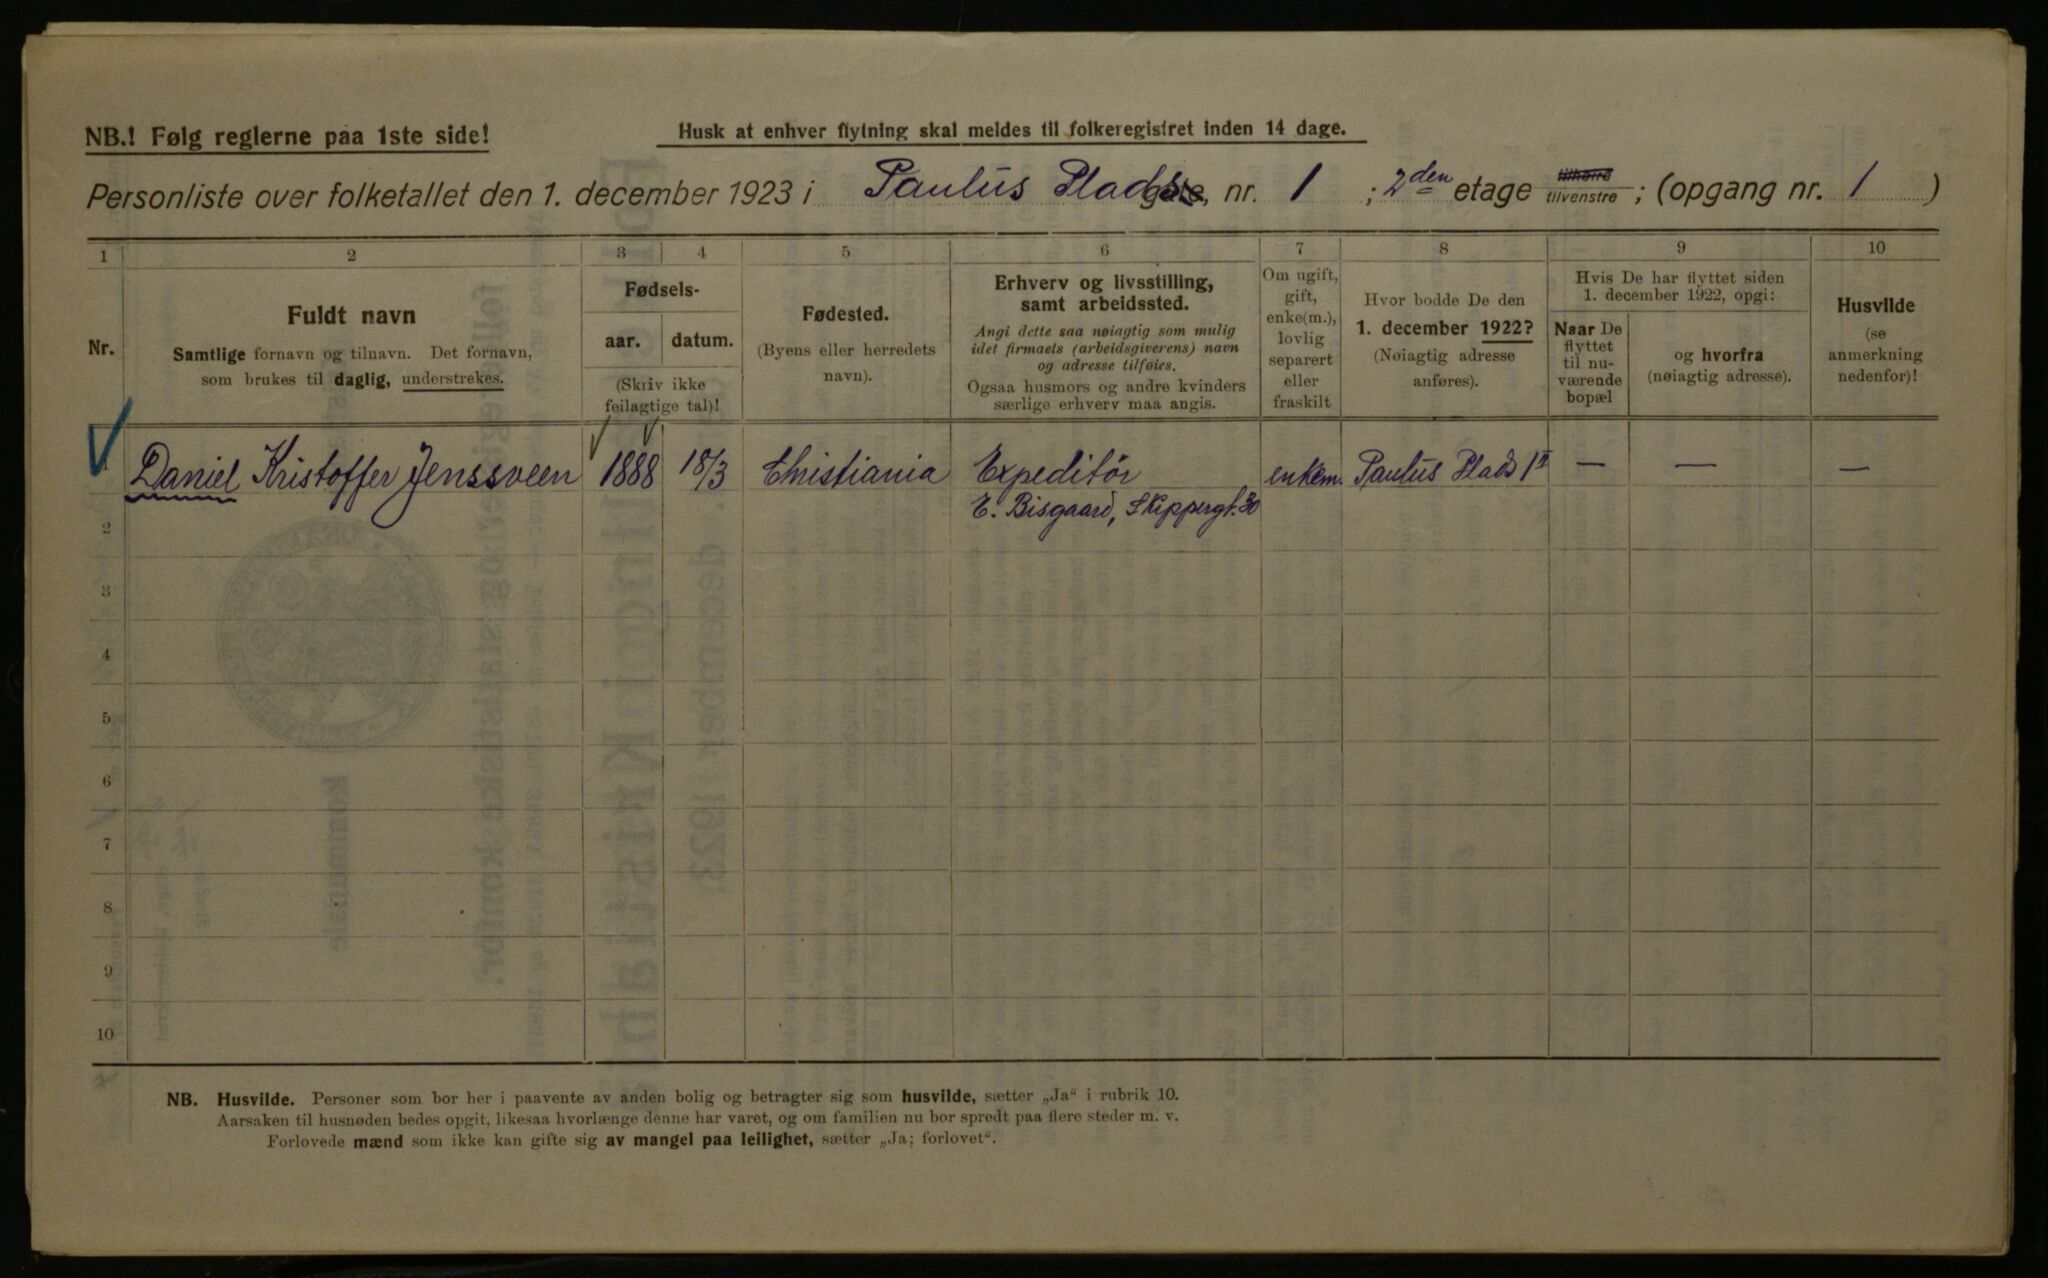 NB.! Følg reglerne paa 1ste side!
Husk at enhver flytning skal meldes til folkeregistret inden 14 dage.
Personliste over folketallet den 1. december 1923 i Paulus Plads gate, nr. 1 ; 2den etage tilhøire tilvenstre ; (opgang nr. 1 )
1 2 3 4 5 6 7 8 9 10
Nr.
Fuldt navn
Samtlige fornavn og tilnavn. Det fornavn,
som brukes til daglig, understrekes.
Fødsels-
aar. datum.
(Skriv ikke
feilagtige tal)!
Fødested.
(Byens eller herredets
navn).
Erhverv og livsstilling,
samt arbeidssted.
Angi dette saa nøiagtig som mulig
idet firmaets (arbeidsgiverens) navn
og adresse tilføies.
Ogsaa husmors og andre kvinders
særlige erhverv maa angis.
Om ugift,
gift,
enke(m.),
lovlig
separert
eller
fraskilt
Hvor bodde De den
1. december 1922?
(Nøiagtig adresse
anføres).
Hvis De har flyttet siden
1. december 1922, opgi:
Naar De
flyttet
til nu-
værende
bopæl
og hvorfra
(nøiagtig adresse).
Husvilde
(se
anmerkning
nedenfor)!
1 Daniel Kristoffer Jenssveen 1888 18/3 Christiania Expeditør enkem. Paulus Plads 1 II — — —
E. Bisgaard, Skippergt. 30
2
3
4
5
6
7
8
9
10
NB. Husvilde. Personer som bor her i paavente av anden bolig og betragter sig som husvilde, sætter „Ja“ i rubrik 10.
Aarsaken til husnøden bedes opgit, likesaa hvorlænge denne har varet, og om familien nu bor spredt paa flere steder m. v.
Forlovede mænd som ikke kan gifte sig av mangel paa leilighet, sætter „Ja; forlovet“.